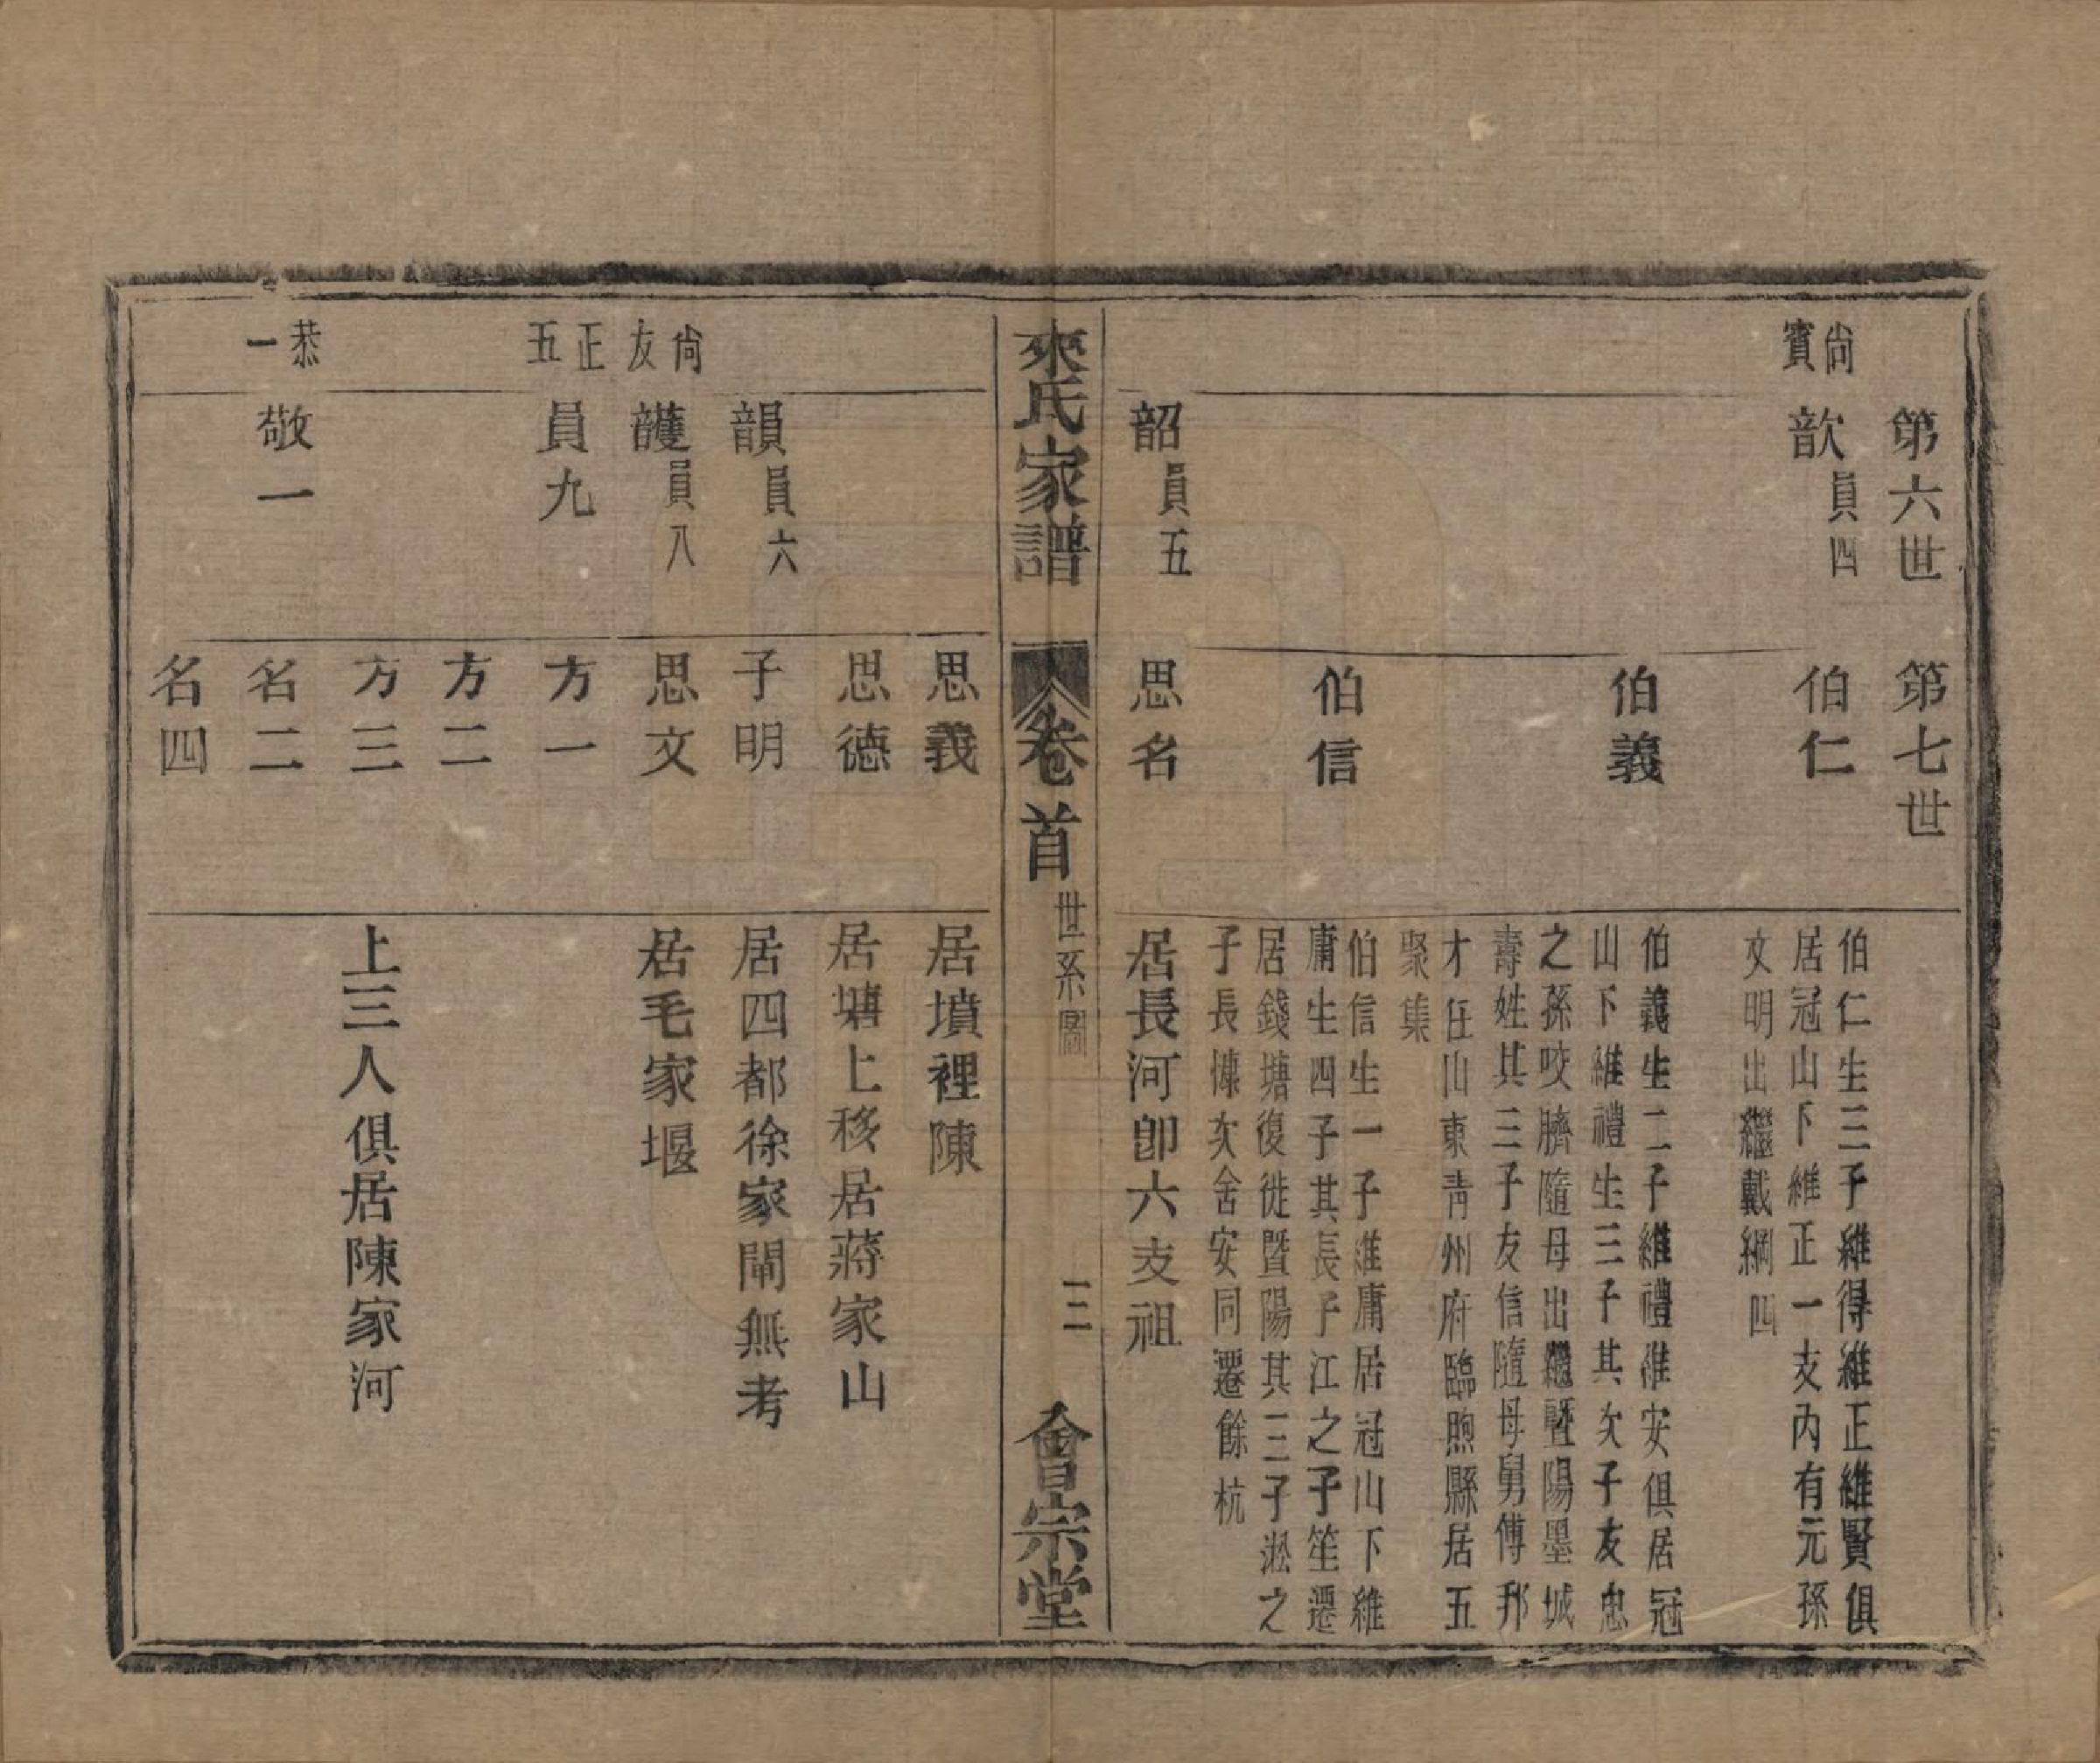 第六世
第七世
尚賓
歆 員四
伯仁
伯仁生三子維得維正維賢俱
居冠山下維正一支內有元孫
文明出繼戴綱四
伯義
伯義生二子維禮維安俱居冠
山下維禮生三子其次子友忠
之孫咬臍隨母出繼暨陽墨城
壽姓其三子友信隨母舅傅邦
才任山東青州府臨朐縣居五
聚集
伯信
伯信生一子維庸居冠山下維
庸生四子其長子江之子笙遷
居錢塘復徙暨陽其三子淞之
子長慷次舍安同遷餘杭
韶 員五
思名
居長河卽六支祖
來氏家譜
卷首
世系圖
三
會宗堂
思義
居墳裡陳
思德
居塘上移居蔣家山
韻 員六
子明
居四都徐家閘無考
尚友
頀 員八
思文
居毛家堰
正五
員九
方一
方二
方三
上三人俱居陳家河
恭一
敬一
名二
名四